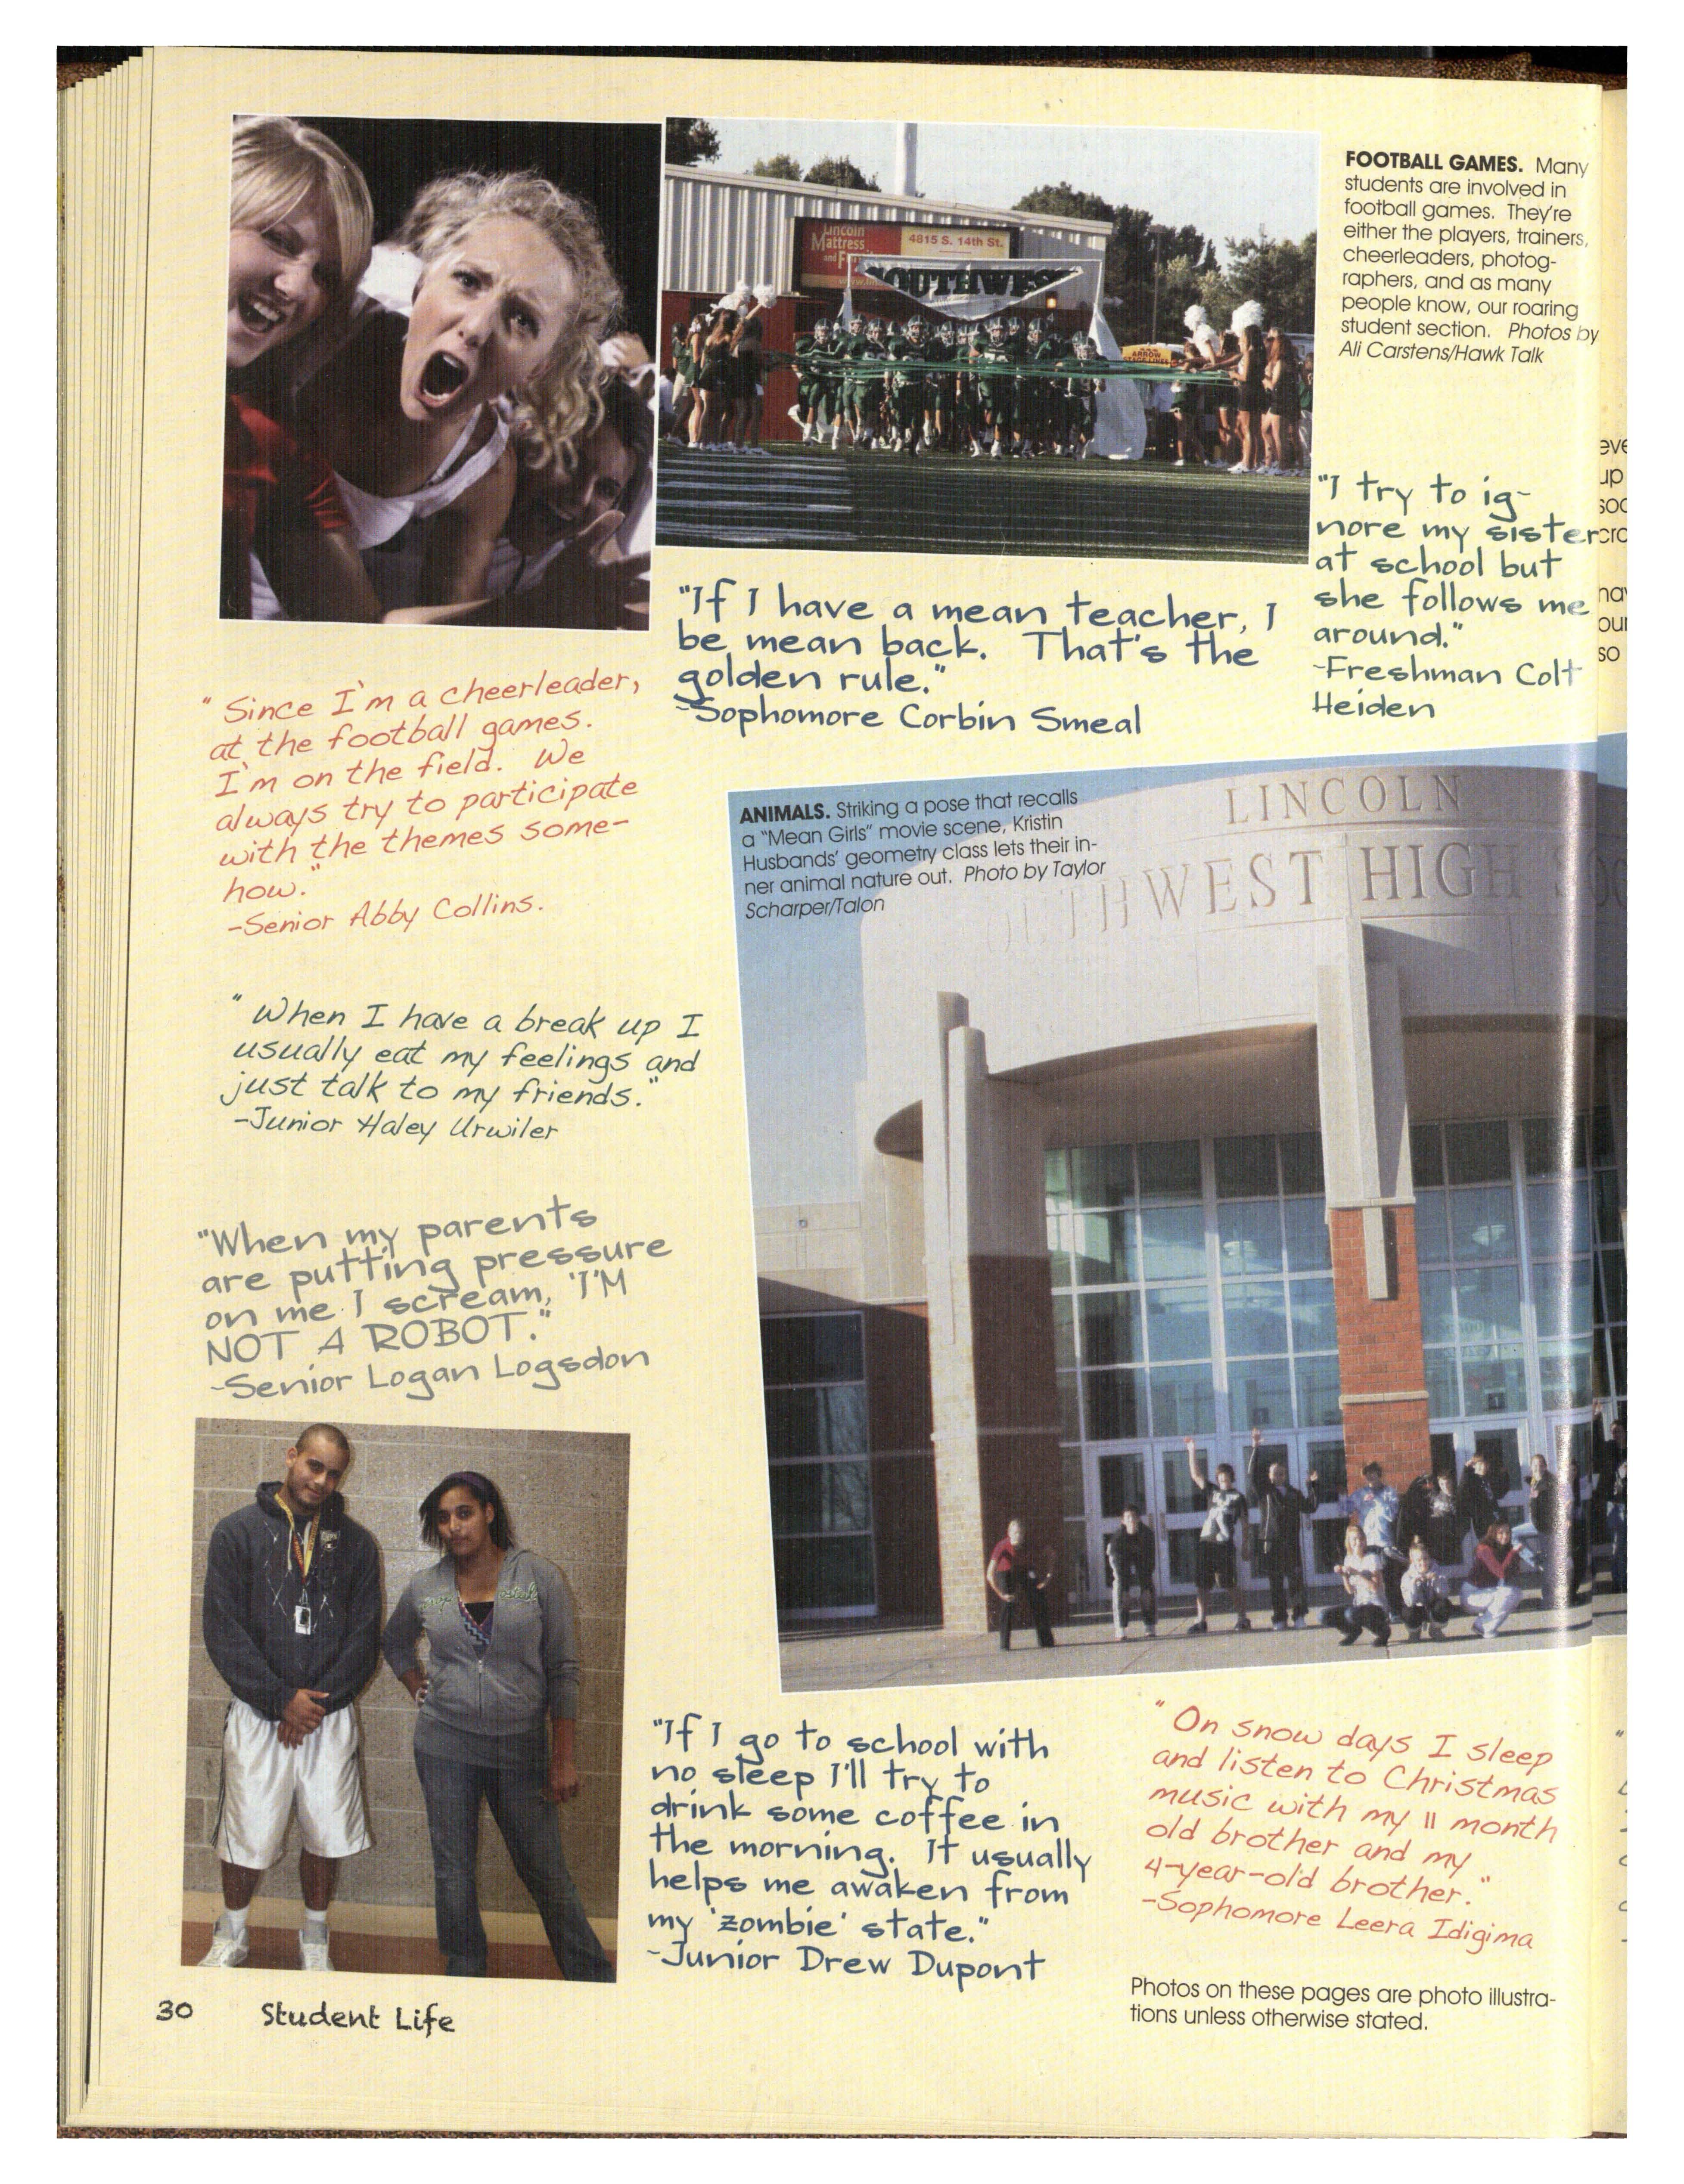 Lincoln
Mattress
and
4815 S. 14th St.
SOUTHWEST
ARROW
STAGE LINES
FOOTBALL GAMES. Many
students are involved in
football games. They're
either the players, trainers,
cheerleaders, photog-
raphers, and as many
people know, our roaring
student section. Photos by
Ali Carstens/Hawk Talk
"I try to ig-
nore my sister
at school but
she follows me
around."
-Freshman Colt
Heiden
"If I have a mean teacher, I
be mean back. That's the
golden rule."
-Sophomore Corbin Smeal
"Since I'm a cheerleader,
at the football games.
I'm on the field. We
always try to participate
with the themes some-
how."
-Senior Abby Collins.
ANIMALS. Striking a pose that recalls
a "Mean Girls" movie scene, Kristin
Husbands' geometry class lets their in-
ner animal nature out. Photo by Taylor
Scharper/Talon
LINCOLN
OUTHWEST HIGH
"When I have a break up I
usually eat my feelings and
just talk to my friends."
-Junior Haley Urwiler
"When my parents
are putting pressure
on me I scream, 'I'M
NOT A ROBOT."
-Senior Logan Logsdon
"If I go to school with
no sleep I'll try to
drink some coffee in
the morning. It usually
helps me awaken from
my 'zombie' state."
-Junior Drew Dupont
"On snow days I sleep
and listen to Christmas
music with my 11 month
old brother and my
4-year-old brother."
-Sophomore Leera Idigima
Photos on these pages are photo illustra-
tions unless otherwise stated.
30 Student Life